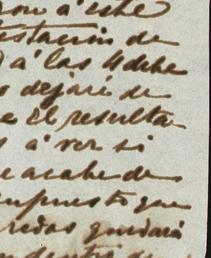 ron á este
estacion de
á las 4 debe
o dejaré de
e el resulta-
s á ver si
e acabe de
mpuesto que
redos quedará